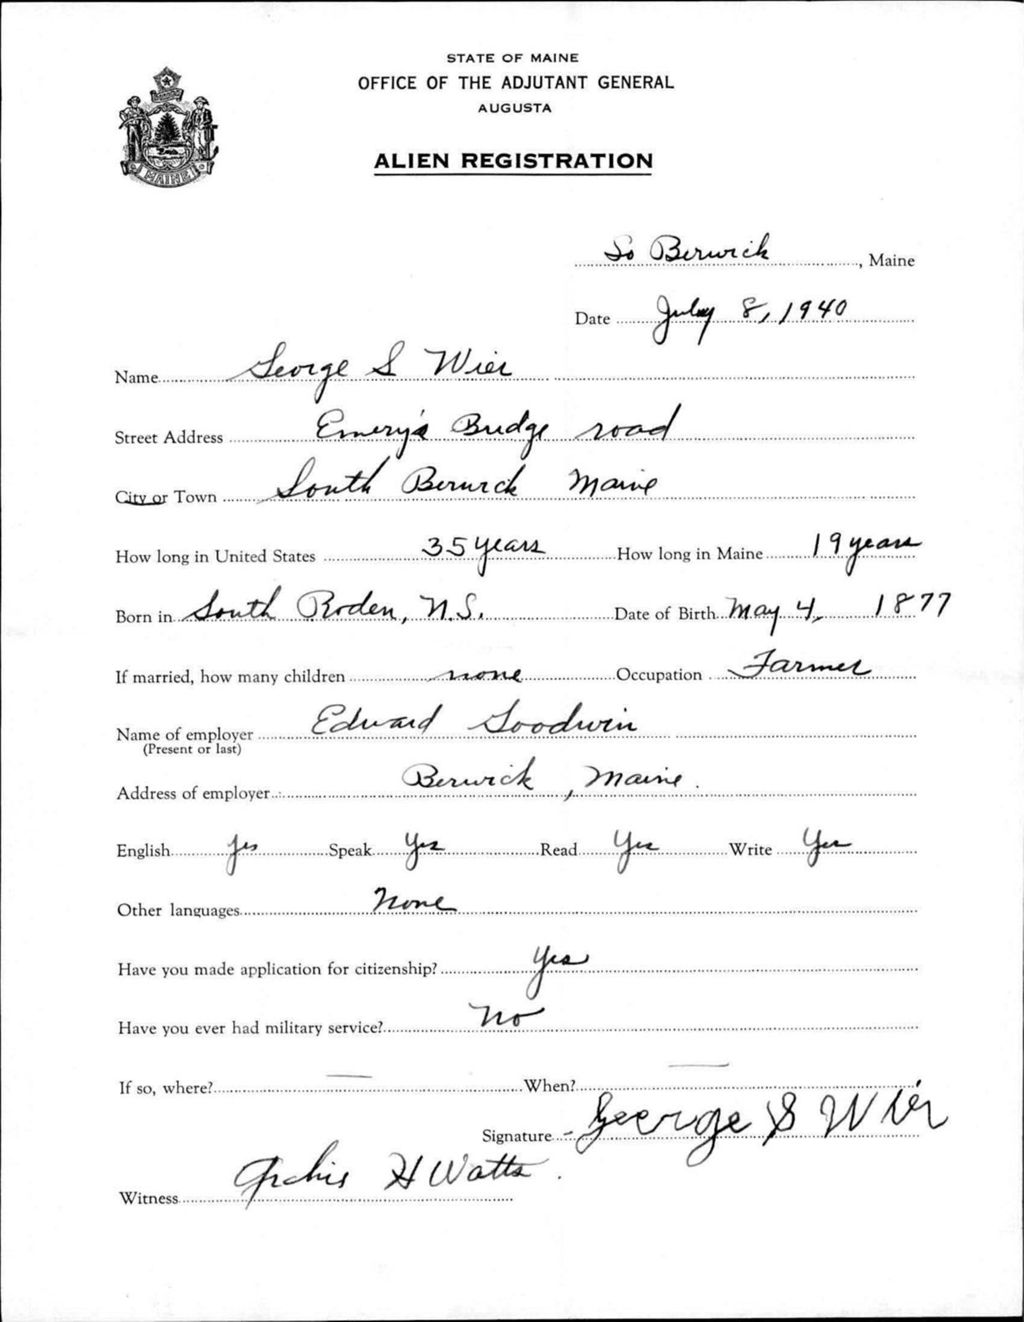 STATE OF MAINE
OFFICE OF THE ADJUTANT GENERAL
AUGUSTA
ALIEN REGISTRATION
MAINE
So Berwick, Maine
Date July 8, 1940
Name George S Wier
Street Address Emery's Bridge road
City or Town South Berwick Maine
How long in United States 35 years How long in Maine 19 years
Born in South Roden, N.S. Date of Birth May 4, 1877
If married, how many children none Occupation Farmer
Name of employer Edward Goodwin
(Present or last)
Address of employer Berwick, Maine.
English Yes Speak Yes Read Yes Write Yes
Other languages None
Have you made application for citizenship? Yes
Have you ever had military service? No
If so, where? — When? —
Signature - George S Wier
Witness Archie H Watts.